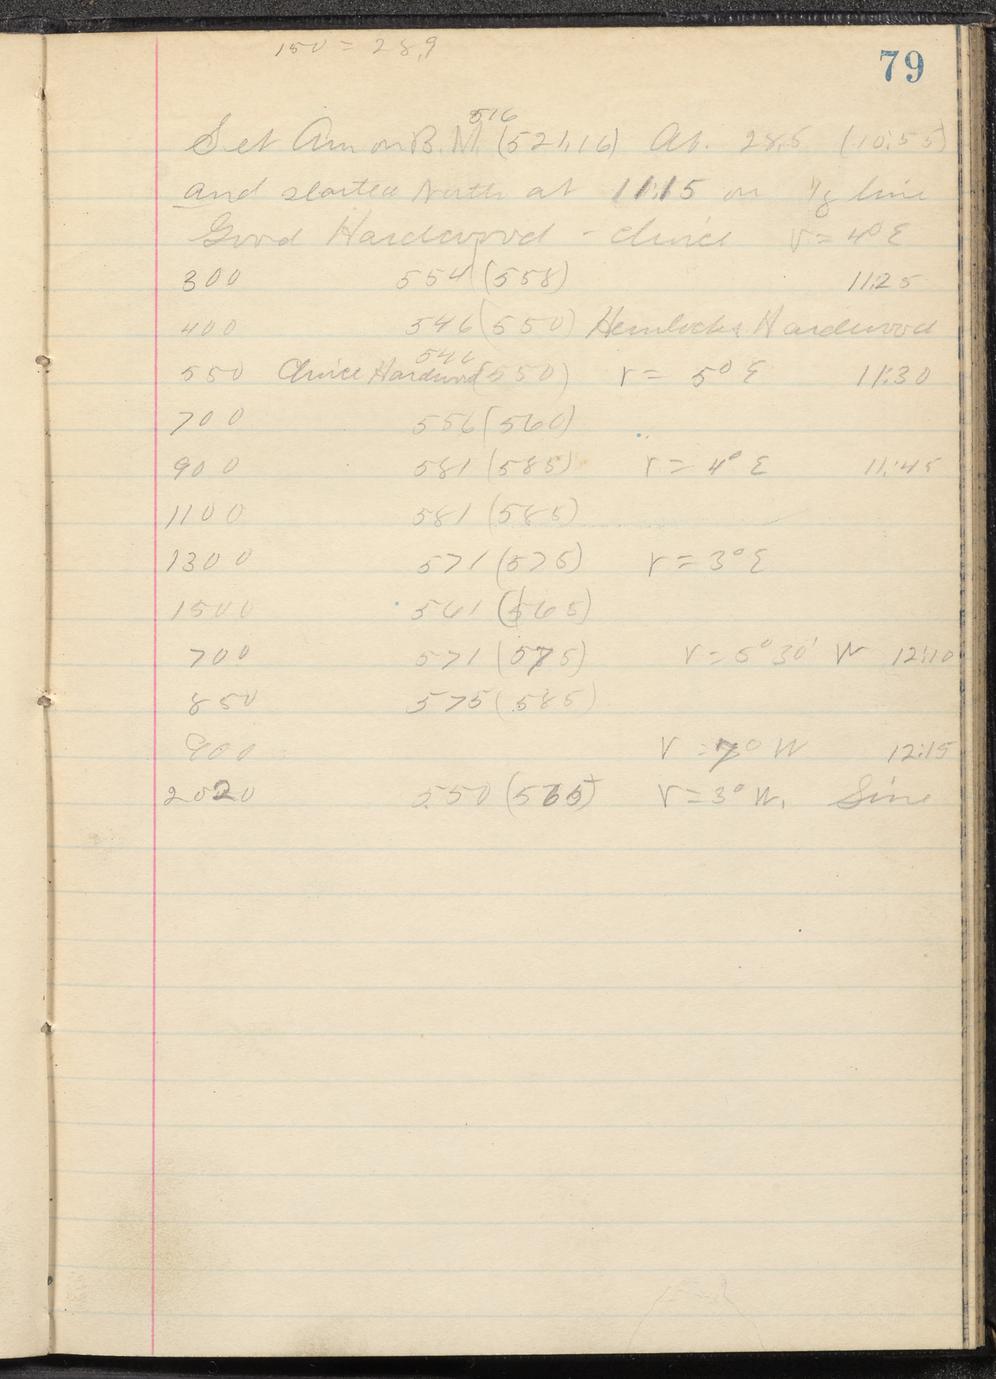 150 = 28.9
79
516
Set An on B.M. (521.16) At. 28.5 (10:55)
and started North at 11:15 on 1/8 line
Good Hardwood - choice V = 4° E
300 554 (558) 11:25
400 546 (550) Hemlock & Hardwood
546
550 Choice Hardwood (550) V = 5° E 11:30
700 556 (560)
900 581 (585) V = 4° E 11:45
1100 581 (585)
1300 571 (575) V = 3° E
1500 561 (565)
700 571 (575) V = 5° 30' W 12:10
850 575 (585)
900 V = 7° W 12:15
2020 550 (565) V = 3° W.